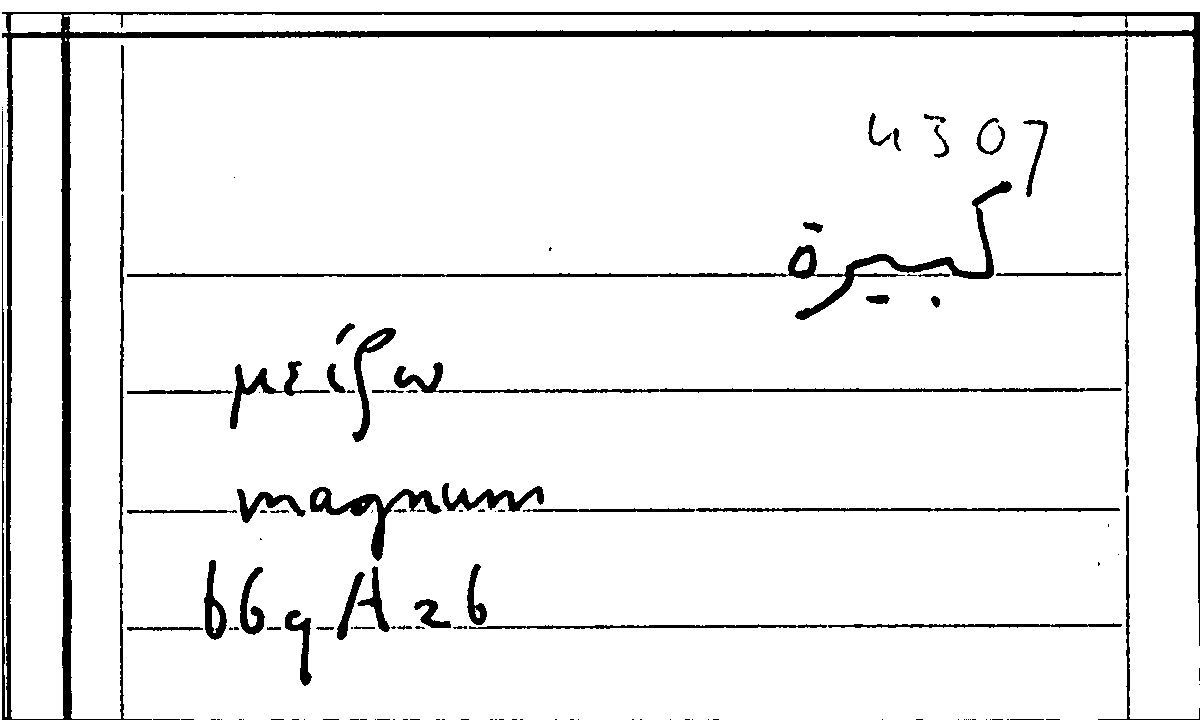 4307
كبيرة
μείζω
magnum
669 A 26